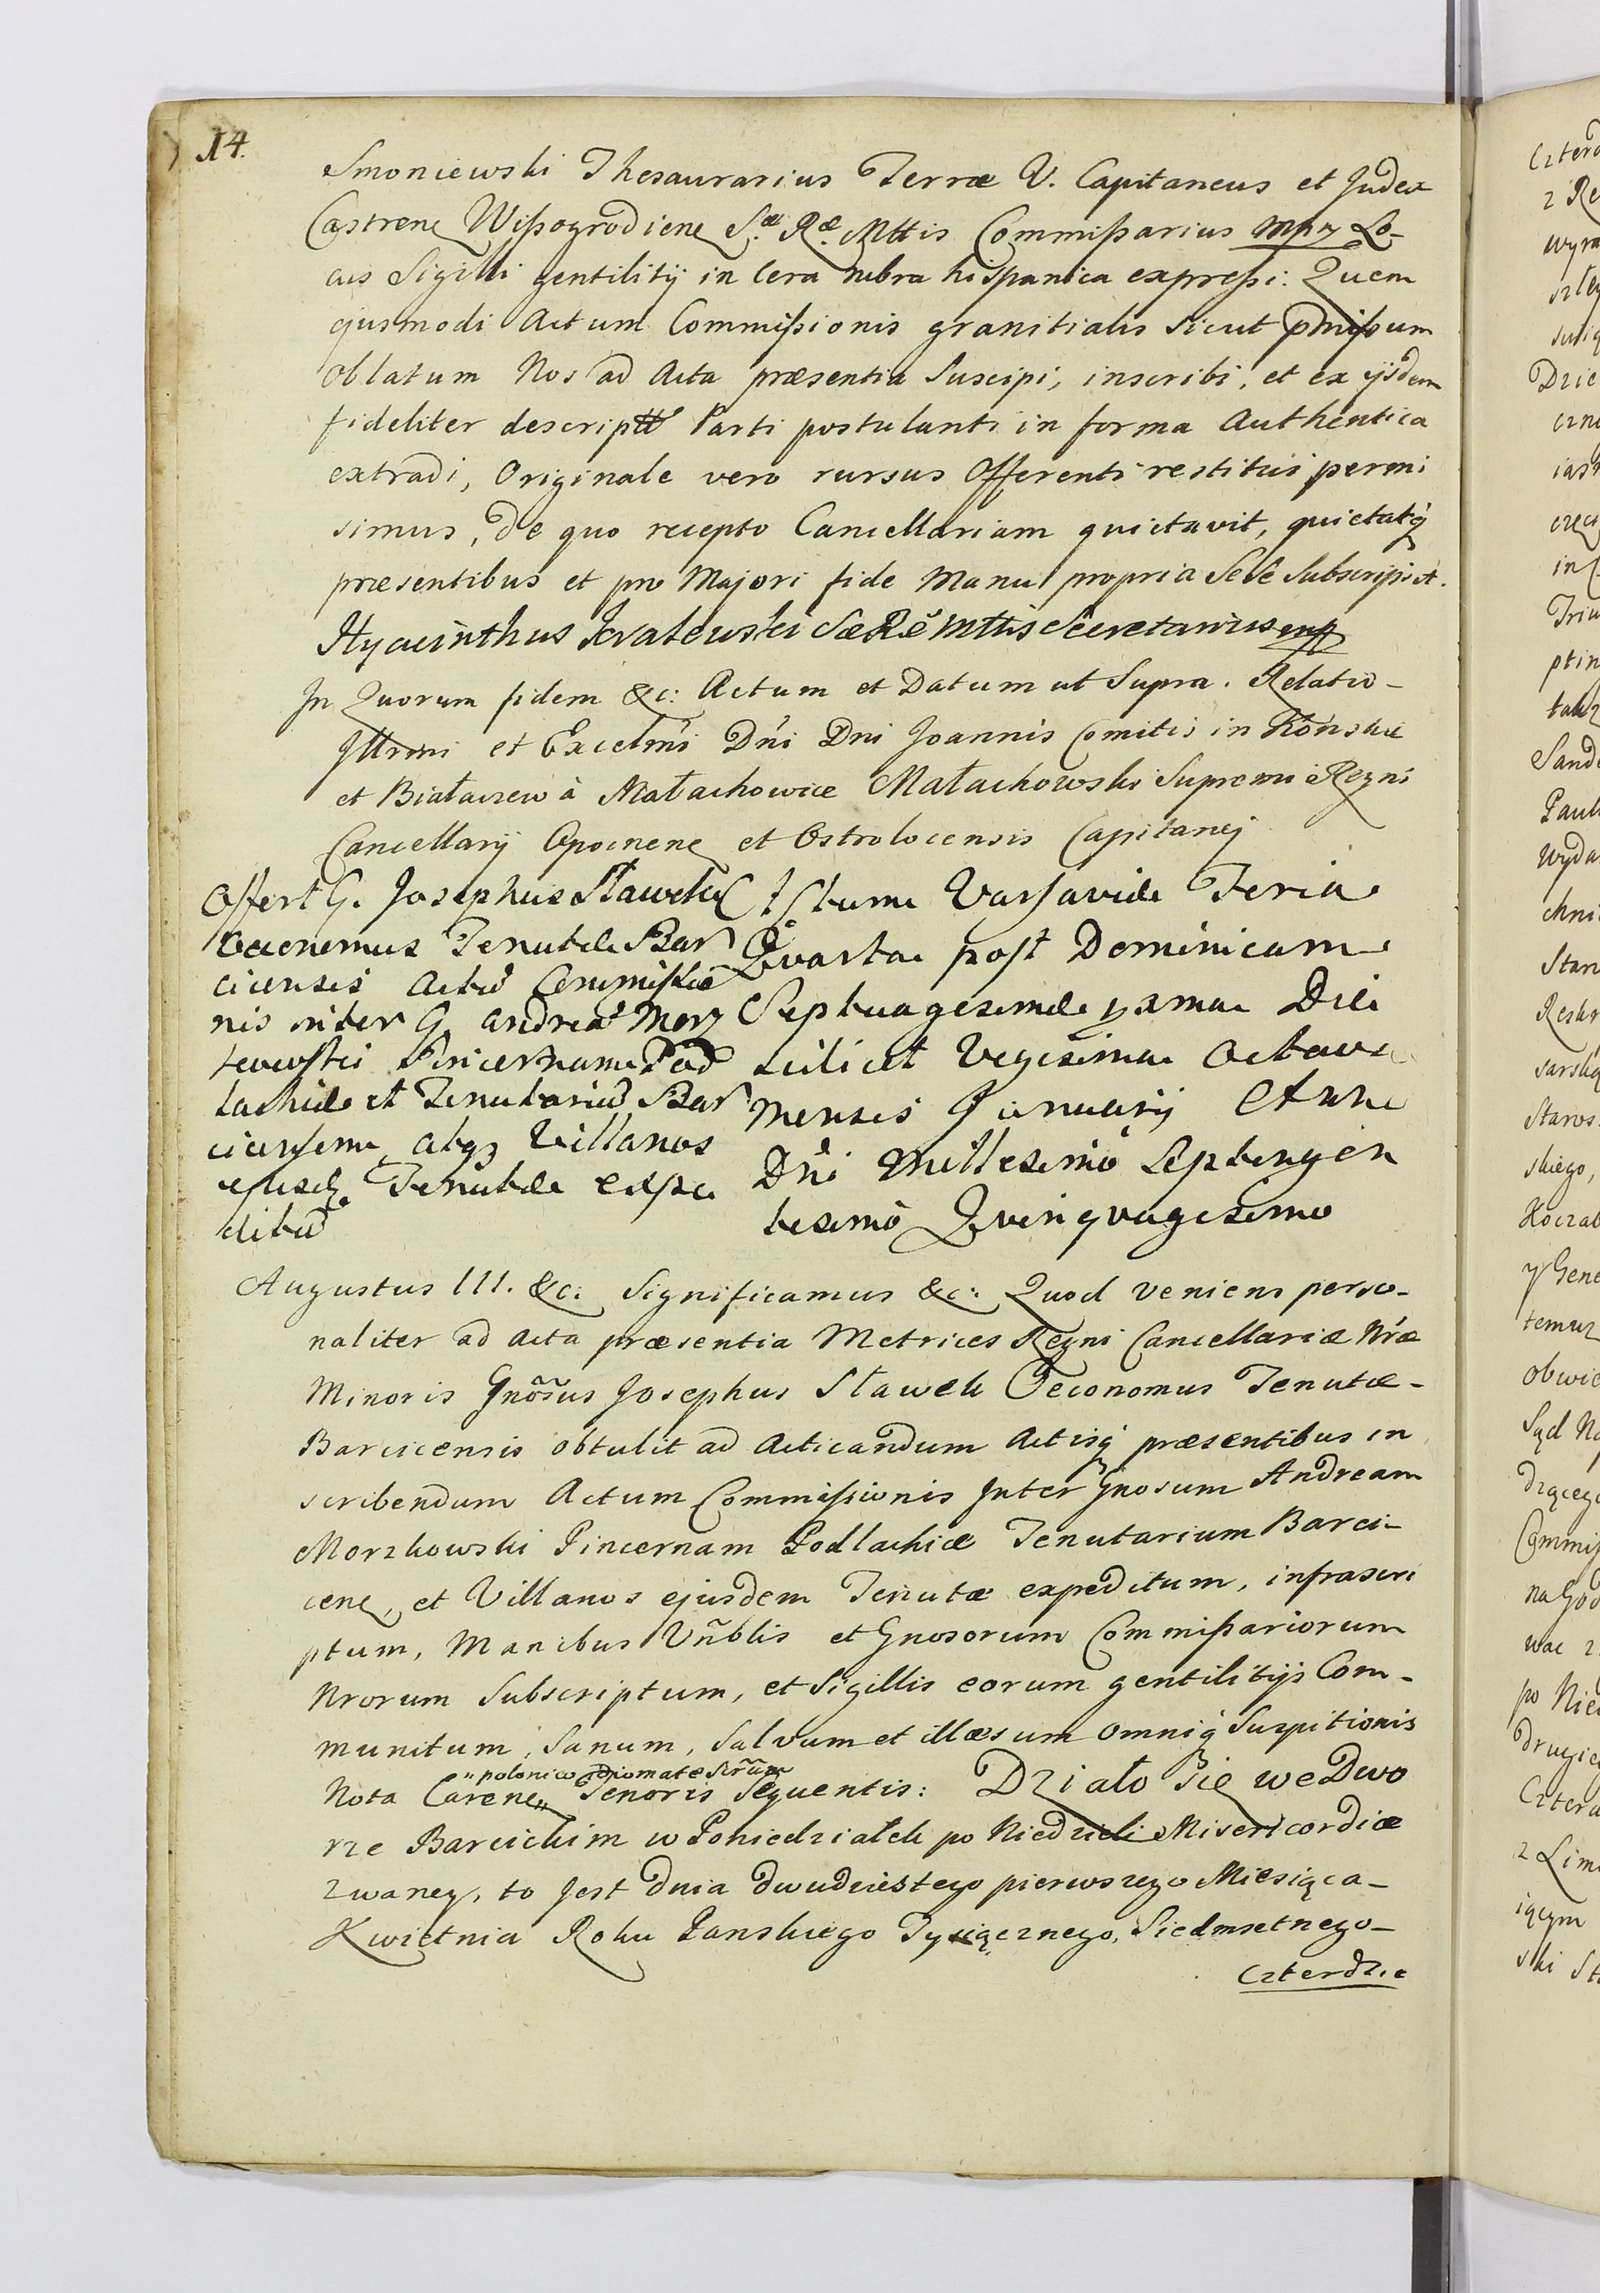 14.
Smoniewski Thesaurarius Terræ V. Capitaneus et Judex
Castrenę Wißogrodienę S.æ R.æ Mttis Commißarius mpr Lo-
cus Sigilli gentilitÿ in Cera rubra hispanica expreßi: Quem
ejusmodi Actum Commißionis granitialis sicut pmißum
oblatum Nos ad Acta præsentia Suscipi, inscribi, et ex ÿsdem
fideliter descriptt Parti postulanti in forma Authentica
extradi, Originale vero rursus Offerenti restitui permi
simus, de quo recepto Cancellariam quietavit, quietatq́
præsentibus et pro Majori fide Manu propria Sese Subscripsit.
Hyacinthus Kratewski SæRæ Mttis Secretarius mp
In Quorum fidem &c: Actum et Datum ut Supra. Relatio-
Illrmi et Excelmi Dńi Dni Joannis Comitis in Końskie
et Białaczew à Małachowice Małachowski Supremi Regni
Cancellarÿ Opocnenę et Ostrolocensis Capitanej
Offert G. Josephus Stawek
Oeconomus Tenutæ Bar
cicensis Actū Commißio
nis inter G. Andreā Morz
kowski Pincernam Pod
lachiæ et Tenutariū Bar
cicensem, atqz Villanos
ejusdę Tenutæ expe
ditū
Actum Varsaviæ Feria
Qvarta post Dominicam
Septuagesimæ pxma Die
scilicet Vigesima Octava
Mensis Januarÿ Anno
Dńi Millesimo Septingen
tesimo Qvinqvagesimo
Augustus III. &c: Significamus &c: Quod veniens perso-
naliter ad Acta præsentia Metrices Regni Cancellariæ Nræ
Minoris Gnosus Josephus Stawek Oeconomus Tenutæ-
Barcicensis obtulit ad Acticandum Actisq́ præsentibus in
scribendum Actum Commißionis Inter Gnosum Andream
Morzkowski Pincernam Podlachiæ Tenutarium Barci-
cenę, et Villanos ejusdem Tenutæ expeditum, infrascri
ptum, Manibus Vñblis et Gnosorum Commißariorum
Nrorum Subscriptum, et Sigillis eorum gentilitÿs Com-
munitum, Sanum, Salvum et illæsum omniq́ Suspitionis
„polonico idiomate scrm̃
Nota Carenę„ Tenoris Sequentis: Działo Się we Dwo
rze Barcickim w Poniedziałek po Niedzieli Misericordiæ
zwaney, to Jest dnia dwudziestego pierwszego Miesiąca-
Kwietnia Roku Panskiego Tysiącznego, Siedmsetnego-
Czterdzie